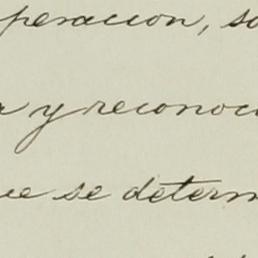 peracion, so
r y reconoc
ue se determ